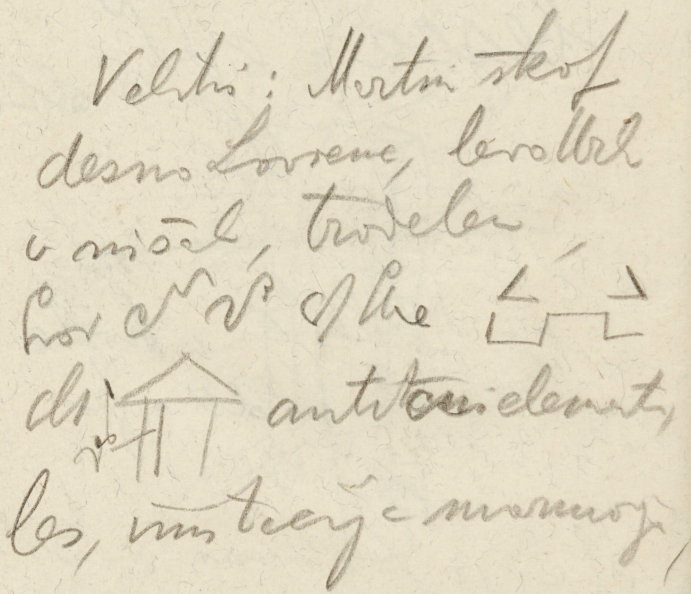 Veliki: Martin škof
desno Lovrenc, levo Urh
v nišah, trodelen,
antikni elementi,
les, imitacija marmorja